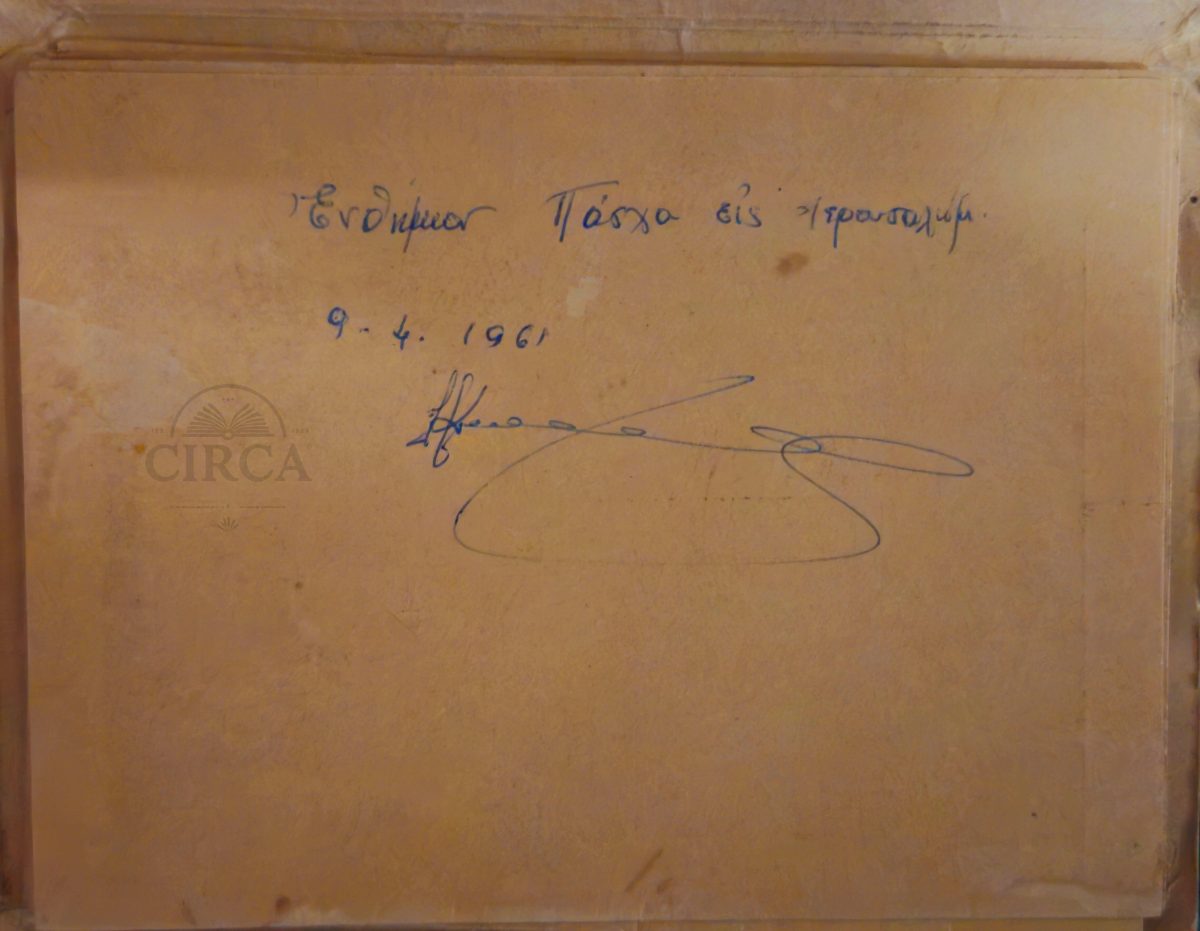 Ἐνθύμιον Πάσχα εἰς Ἱερουσαλήμ.
9-4. 1961
CIRCA